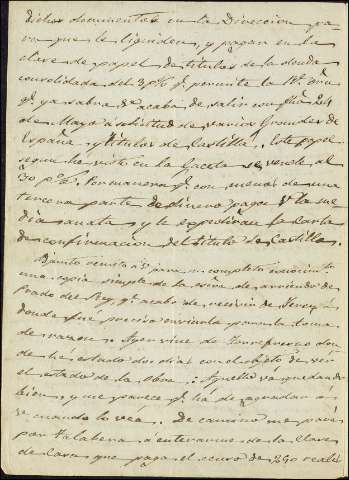 dichos documentos en la Direccion pa-
ra que le liquiden, y pagan en la
clase de papel de titulos de la deuda
consolidada del 3 p% qe permite la Rl. orn
qe ya sabra Va. acaba de salir con fha 24
de Mayo a solicitud de varios Grandes de
España y titulos de Castilla. Este papel
segun he visto en la Gaceta se vende al
30 p%. Por manera qe con menos de una
tercera parte de dinero paga Va. la me-
dia anata, y le expediran la carta
de confirmacion del titulo de Castilla.
Adjunto remito a Va. para su completo conocimto.
una copia simple de la escra. de arriendo de
Prado del Rey, qe acabo de recivir de Jerez a
donde fué preciso enviarla para la toma
de razon. Ayer vine de don
de he estado dos dias con el objeto de ver
el estado de la obra. Aquello vá quedando
bien, y me parece qe ha de agradar a
V. cuando lo vea. De camino me pasé
por a enterarme de la clase
de casa que paga el censo de 290 reales